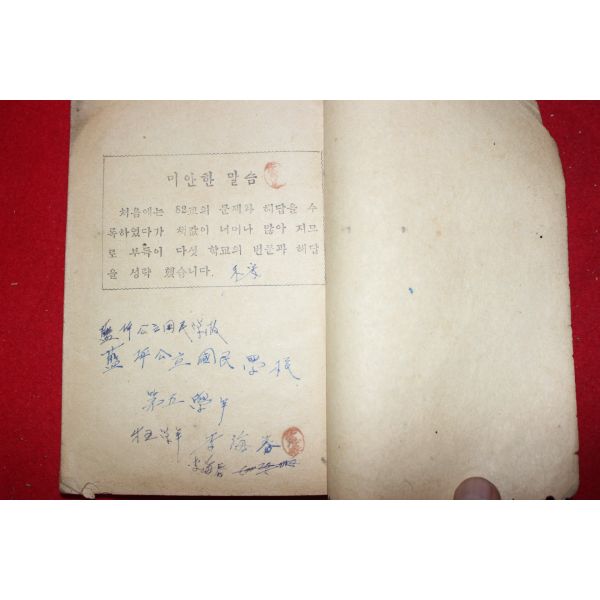 미안한 말슴
처음에는 82교의 문제와 해답을 수
록하였다가 책값이 너머나 많아 지므
로 부득이 다섯 학교의 번문과 해답
을 생략 했습니다.
坪公立國民學校
坪公立國民學校
第五學年
第五学年 李海春
李海